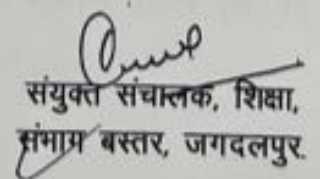 संयुक्त संचालक, शिक्षा,
संभाग बस्तर, जगदलपुर.